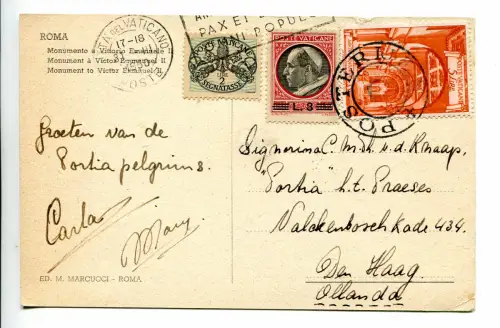 ROMA
Monumento a Vittorio Emanuele II
Monument à Victor Emmanuel II
Monument to Victor Emanuel II
CITTÀ DEL VATICANO
17-18
PAX ET
POPULE
POSTE VATICANE
SEGNATASSE
POSTE VATICANE
L. 3
POSTE
Groeten van de
Portia pelgrims.
Carla
Mary
Signorina C. M. v. d. Knaap,
"Portia" h.t. Praeses
Valckenboschkade 434.
Den Haag
Ollanda
ED. M. MARCUCCI - ROMA